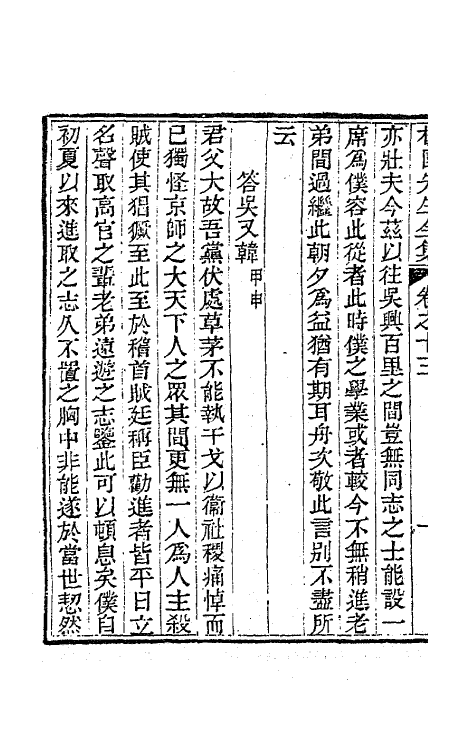 卷之十三
亦壯夫今茲以往吳興百里之間豈無同志之士能設一
席為僕容此從者此時僕之學業或者較今不無稍進老
弟間過繼此朝夕為益猶有期耳舟次敬此言别不盡所
云
答吳又韓甲申
君父大故吾黨伏處草茅不能執干戈以衞社稷痛悼而
已獨怪京師之大天下人之眾其間更無一人為人主殺
賊使其猖獗至此至於稽首賊廷稱臣勸進者皆平日立
名聲取高官之輩老弟遠遊之志鑒此可以頓息矣僕自
初夏以來進取之志久不置之胸中非能遂於當世恝然